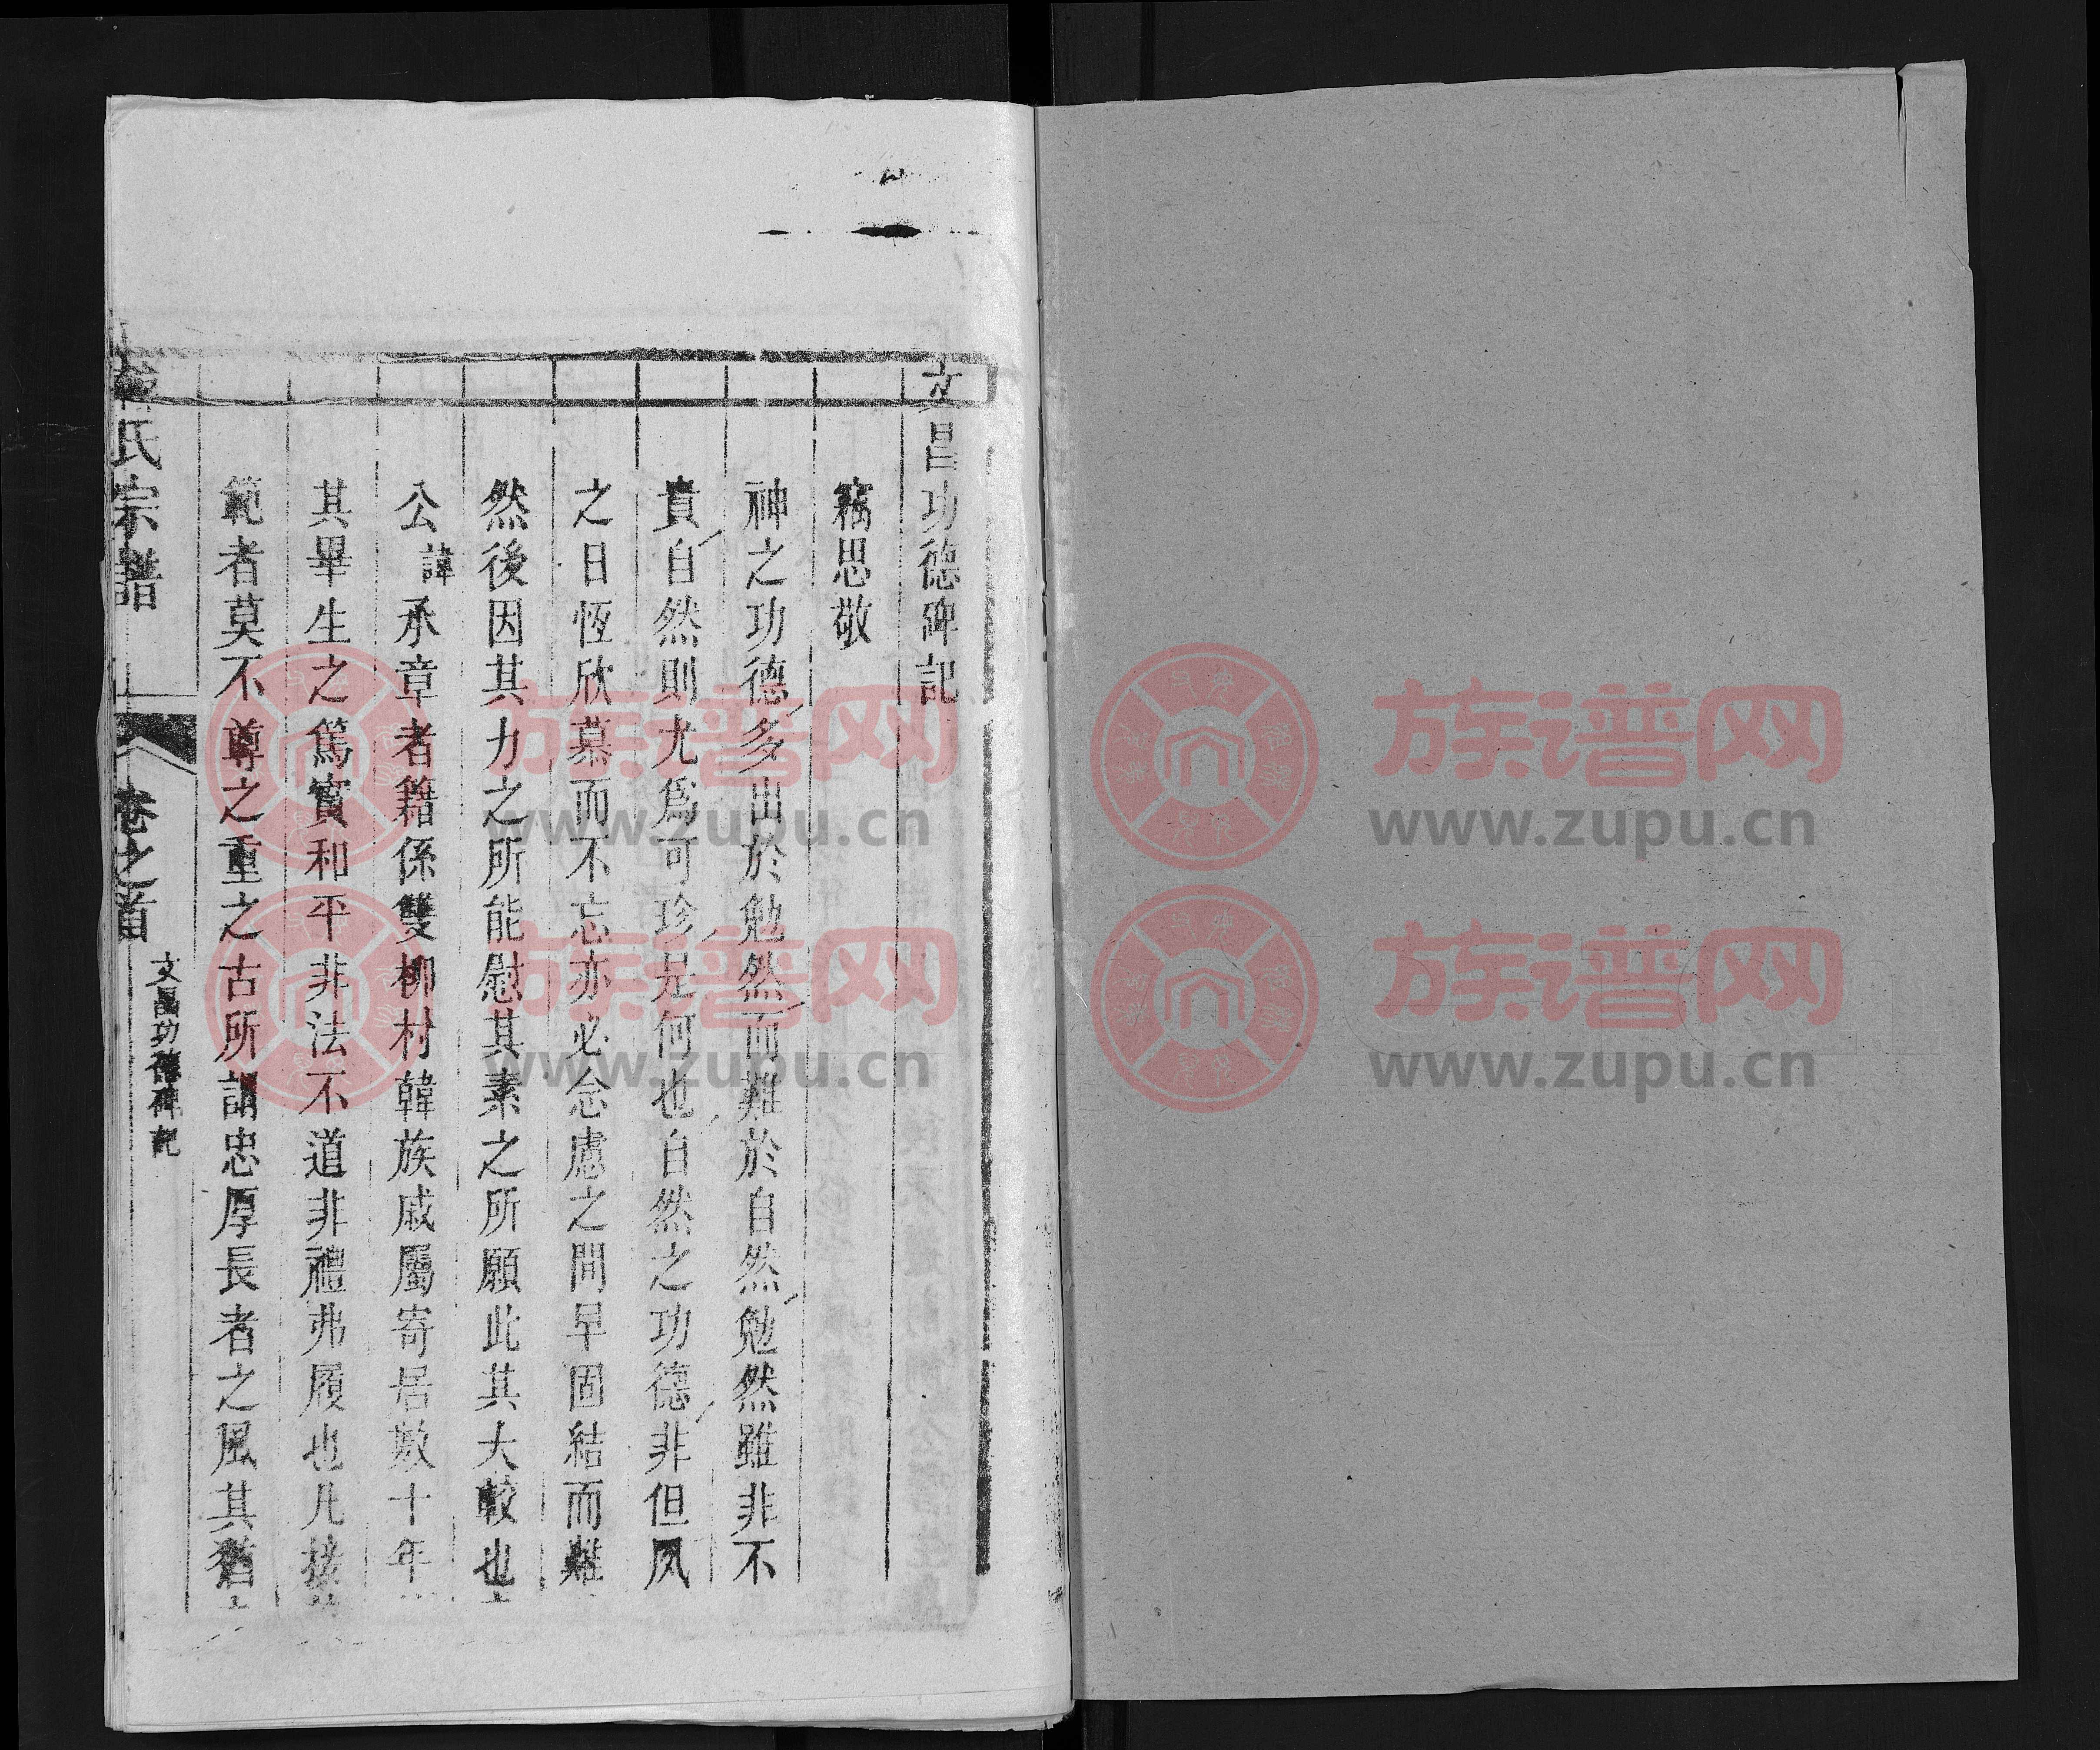 文昌功德碑記
竊思敬
神之功德多出於勉然而難於自然勉然雖非不
貴自然則尤為可珍是何也自然之功德非但夙
之日恆欣慕而不忘亦必念慮之間早固結而難
然後因其力之所能慰其素之所願此其大較也
公諱承章者籍係雙柳村韓族戚屬寄居數十年
其畢生之篤實和平非法不道非禮弗履也凡接
範者莫不尊之重之古所謂忠厚長者之風其猶
氏宗譜
卷之首
文昌功德碑記
族谱网
www.zupu.cn
族谱网
www.zupu.cn
族谱网
www.zupu.cn
族谱网
www.zupu.cn